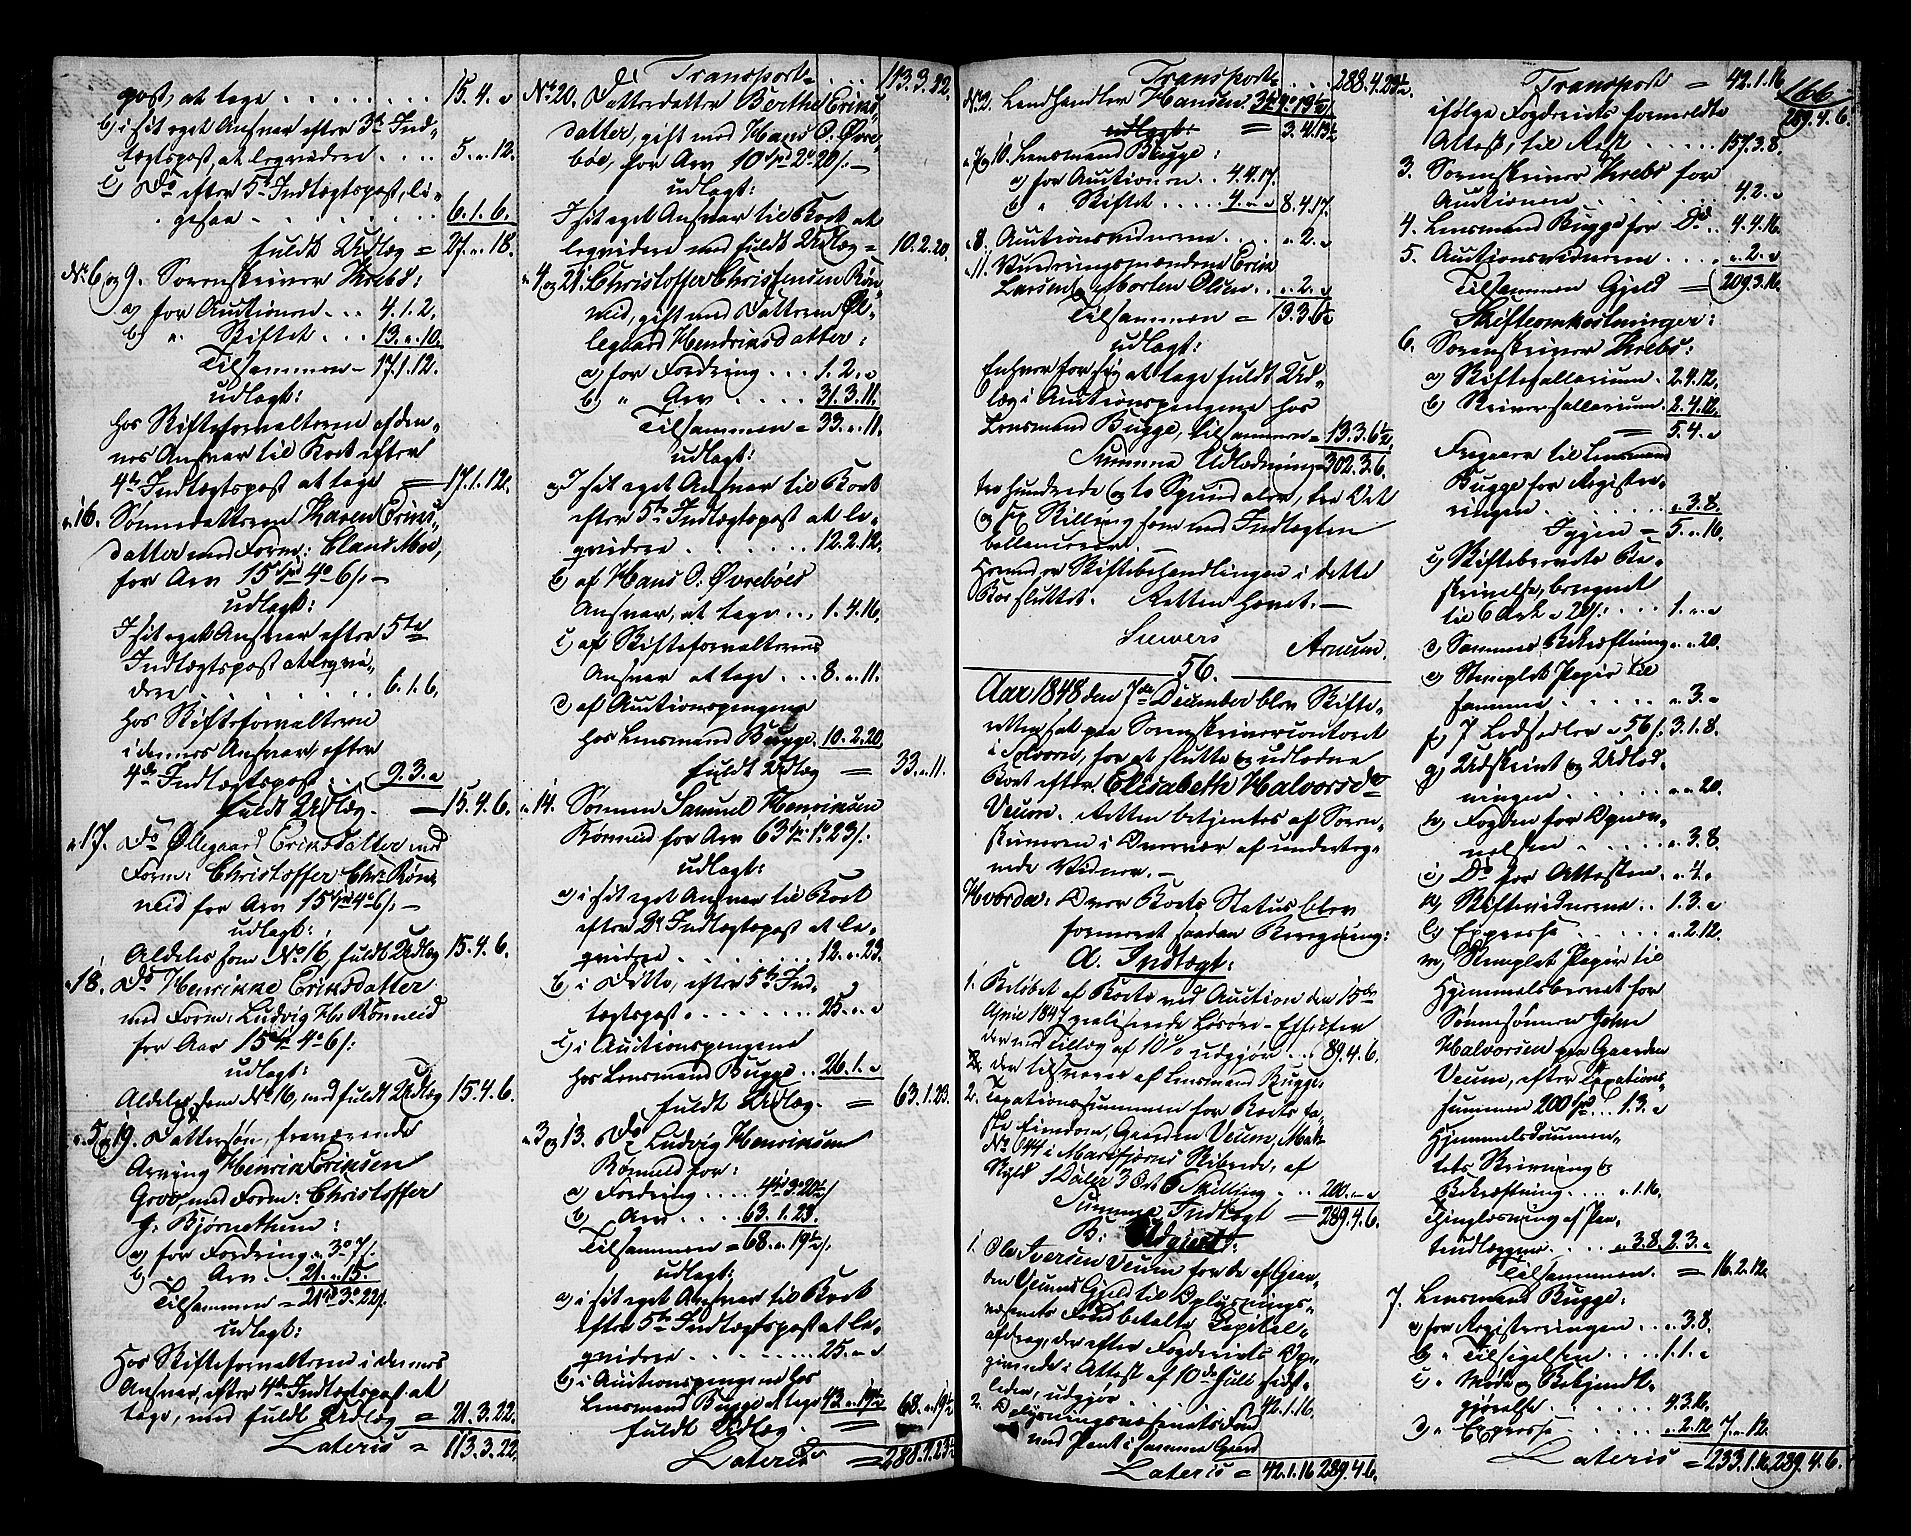 post, at tage . . . . . . . 15.4.„
b) i sit eget Ansvar efter 3die Ind-
tægtspost, at leqvidere . . . . 5.„.12.
c) Do efter 5te Indtægtspost, li-
gesaa . . . . . . . . 6.1.6.
fuldt Udlæg = 27.„.18.
No 6 og 9. Sorenskriver Krebs:
a) for Auctionen . . . 4.1.2.
b) „ Skiftet . . . 13.„.10.
Tilsammen - 17.1.12.
udlagt:
hos Skifteforvalteren af den-
nes Ansvar til Boet efter
4de Indtægtspost at tage = 17.1.12.
„ 16. Sønnedatteren Karen Eriks-
datter med Form:
for Arv 15 Spd 4 o 6 s. -
udlagt:
I sit eget Ansvar efter 5te
Indtægtspost at leqvi-
dere . . . . . . . . 6.1.6.
hos Skifteforvalteren
i dennes Ansvar efter
4de Indtægtspost . . 9.3.„
fuldt Udlæg. - 15.4.6.
„ 17. Do Øllegaard Eriksdatter med
Form: Christoffer Chr. Røn-
neid for Arv 15 Spd 4 o 6 s. -
udlagt:
Aldeles som No 16, fuldt Udlæg 15.4.6.
„ 18. Do Henrikke Eriksdatter
med Form: Ludvig Hs Rønneid
for Arv 15 Spd 4 o 6 s:
udlagt:
Aldeles som No 16, med fuldt Udlæg 15.4.6.
„ 5 og 19. Dattersøn, fraværende
Arving Henrik Eriksen
Grov, med Form: Christoffer
J. Bjørnethun:
a) for Fordring „ 3 o 7 s.
b) „ Arv . . 21.„.15.
Tilsammen = 21 Spd 3 o 22 s.
udlagt:
Hos Skifteforvalteren i dennes
Ansvar, efter 4de Indtægtspost at
tage, med fuldt Udlæg = 21.3.22.
Lateris = 113.3.22.
Transport . . . 113.3.22.
No 20. Do Datterdatter Berthe Eriks-
datter, gift med Hans O. Øvre-
bøe, for Arv 10 Spd 2 o 20 s. -
udlagt:
I sit eget Ansvar til Boet at
leqvidere med fuldt Udlæg = 10.2.20.
„ 4 og 21. Christoffer Christensen Røn-
neid, gift med Datteren Øl-
legaard Hendriksdatter:
a) for Fordring . . . 1.2.„
b) „ Arv . . . . 31.3.11.
Tilsammen = 33.„.11.
udlagt:
a) I sit eget Ansvar til Boet
efter 5te Indtægtspost at le-
qvidere . . . . . . . 12.2.12.
b) af Hans O. Øvrebøes
Ansvar, at tage . . . 1.4.16.
c) af Skifteforvalterens
Ansvar at tage . . . 8.„.11.
d) af Auctionspengene
hos Lensmand Bugge. 10.2.20
fuldt Udlæg = 33.„.11.
„ 14. Sønnen Samuel Henriksen
Rønneid for Arv 63 Spd 1 o 23 s:
udlagt:
a) i sit eget Ansvar til Boet
efter 2d Indtægtspost at le-
qvidere . . . . . . . 12.„.23.
b) i Ditto, efter 5te Ind-
tægtspost . . . . . . . 25.„.„
c) i Auctionspengene
hos Lensmand Bugge . . 26.1.„
fuldt Udlæg. = 63.1.23.
„ 3 og 13. Do Ludvig Henriksen
Rønneid for:
a) Fordring . . . . 4 Spd 3 o 20½ s
b) Arv . . . . 63.1.23.
Tilsammen = 68.„.19½ s.
udlagt:
a) i sit eget Ansvar til Boet
efter 5te Indtægtspost at le-
qvidere . . . . . . . . 25.„.„
b) i Auctionspengene hos
Lensmand Bugge at tage 43.„.19½ 68.„.19½
fuldt Udlæg. =
Lateris = 288.4.23½
Transport . . . 288.4.23½.
No 2. Landhandler Hansen: 3 Spd 4 o 13½ s
udlagt: = 3.4.13½
„ 7 og 10. Lensmand Bugge:
a) for Auctionen . . 4.4.17.
b) „ Skiftet . . . . 4.„.„ 8.4.17.
„ 8. Auctionsvidnerne . . . . „.2.„
„ 11. Vurderingsmændene Erik
Larsen og Morten Olsen . . „.2.„
Tilsammen = 13.3.6½
udlagt:
Enhver for sig at tage fuldt Ud-
læg i Auctionspengene hos
Lensmand Bugge, tilsammen = 13.3.6½
Summa Udlodning = 302.3.6.
tre hundrede og to Speciedaler, tre Ort
og sex Skilling som med Indtægten
ballancerer.
Hermed er Skiftebehandlingen i dette
Bo sluttet. Retten hævet. -
Siewers Arneem.
56.
Aar 1848 den 7de December blev Skifte-
retten sat paa Sorenskrivercontoret
i Solvorn, for at slutte og udlodne
Boet efter Elisabeth Halvorsdr
Veum. Retten betjentes af Soren-
skriveren i Overvær af underteg-
nede Vidner. -
Hvorda: Over Boets Status blev
formeret saadan Beregning:
A. Indtægt:
1. Beløbet af Boets ved Auction den 15de
April 1847 realiserede Løsøre-Effecter
der med Tillæg af 10% udgjør . . . 89.4.6.
der tilsvares af Lensmand Bugge.
2. Taxationssummen for Boets fa-
ste Eiendom, Gaarden Veum, Matr.
No 144 i Marifjærens Skibrede, af
Skyld 1 Daler 3 Ort 6 Skilling . . . 200.„.„
Summa Indtægt = 289.4.6.
B: Udgivt:
1. Ole Iversen Veum for de af Gaar-
den Veums Gjeld til Oplysnings-
væsenets Fond betalte Capital-
afdrag, der efter Fogderiets Op-
givende i Attest af 10de Juli sidst-
leden, udgjør . . . . . . . 42.1.16.
2. Oplysningsvæsenets Fond
med Pant i samme Gaard
Lateris = 42.1.16 289.4.6.
Transport = 42.1.16 166
289.4.6.
ifølge Fogderiets formeldte
Attest, til Rest . . . . . 157.3.8.
3. Sorenskriver Krebs for
Auctionen . . . . . . . 4.2.„
4. Lensmand Bugge for Do. . 4.4.16.
5. Auctionsvidnerne . . . . „.2.„
Tilsammen Gjeld = 209.3.16.
Skifteomkostninger:
6. Sorenskriver Krebs:
a) Skiftesallarium . 2.4.12.
b) Skriversallarium . 2.4.12.
= 5.4.„
Fragaaer til Lensmand
Bugge for Registre-
ringen . . . . . . . „.3.8.
Igjen = 5.„.16.
c) Skiftebrevets Be-
skrivelse, beregnet
til 6 Ark a 20 s: . . . . 1.„.„
d) Sammes Bekræftning „.„.20.
e) Stemplet Papir til
samme . . . . . . „.3.„
f) 7 Lodsedler a 56 s. 3.1.8.
g) Udskrivt og Udlod-
ningen . . . . . . „.„.20.
h) Fogden for Opnæv-
nelsen . . . . . . „.3.8.
i) Do for Attesten . . „.4.„
k) Skiftevidnerne . . 1.3.„
l) Expresse . . . . . „.2.12.
m) Stemplet Papir til
Hjemmelsbrevet for
Sønnesønnen John
Halvorsen paa Gaarden
Veum, efter Taxations-
summen 200 Spd . . 1.3.„
Hjemmelsdocumen-
tets Skrivning og
Bekræftning . . . . „.1.16.
Thinglæsning af Pan-
teudlæggene . . . . „.3.8. 2.3.„
Tilsammen. = 16.2.12.
7. Lensmand Bugge:
a) for Registreringen . . „.3.8.
b) „ Tilsigelsen . . . . 1.1.„
c) „ Møde og Bekjendt-
gjørelse . . . . . . 4.3.16.
d) „ Expresse . . . . . „.2.12 7.„.12.
Lateris = 233.1.16. 289.4.6.